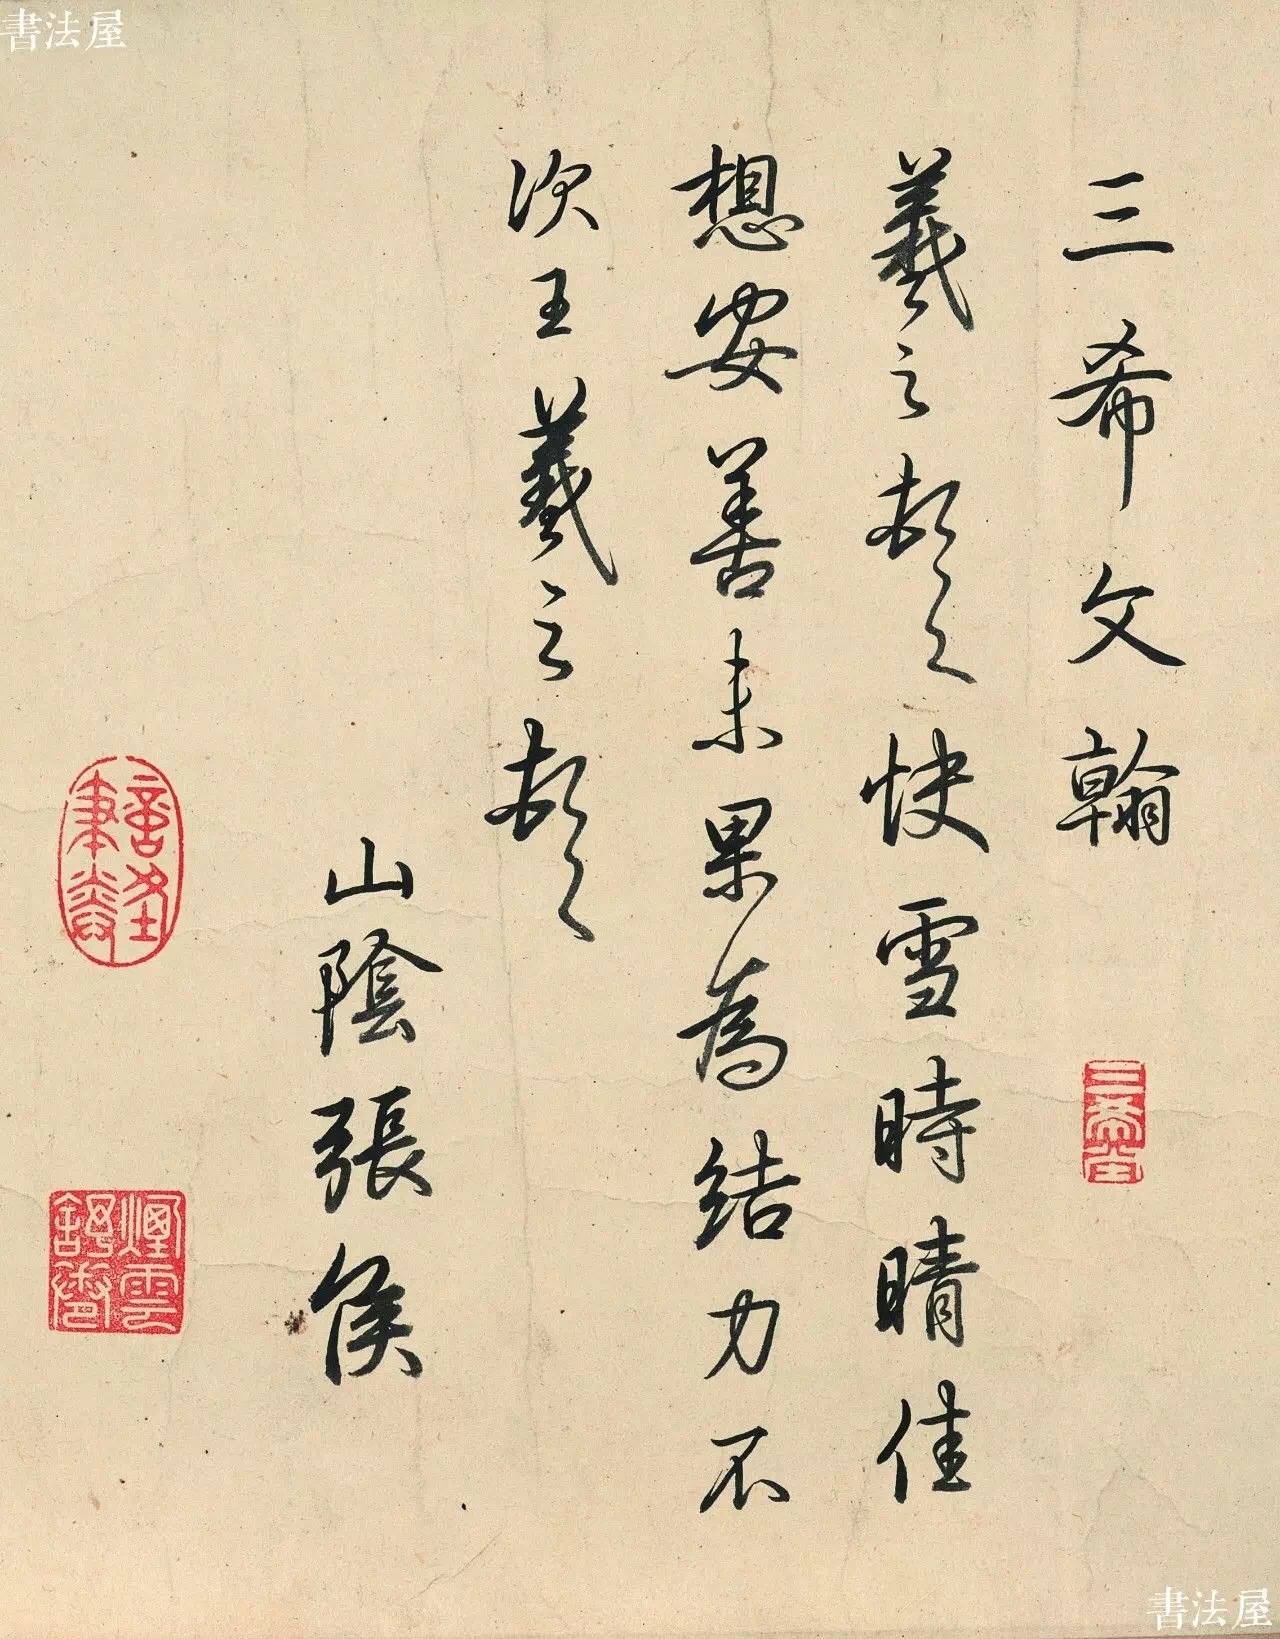 書法屋
三希文翰
三希堂
羲之頓首快雪時晴佳
想安善未果為結力不
次王羲之頓首
山陰張侯
煙雲
舒卷
書法屋